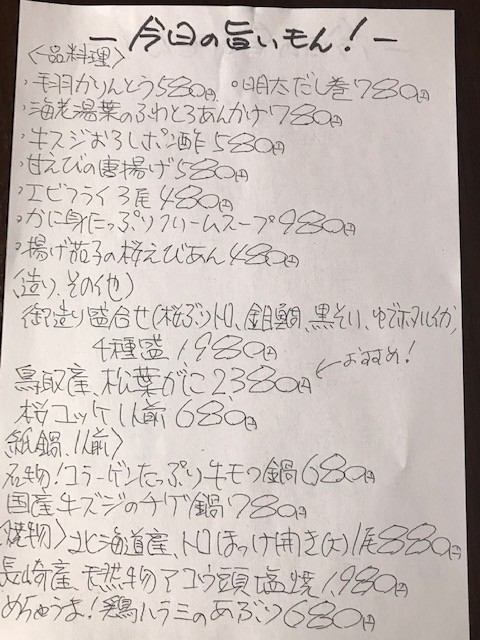 ー今日の旨いもん！ー
〈一品料理〉
・手羽かりんとう580円 ・明太だし巻780円
・海老湯葉のふわとろあんかけ780円
・牛スジおろしポン酢580円
・甘えびの唐揚げ580円
・エビフライ3尾480円
・かに身たっぷりクリームスープ980円
・揚げ茄子の桜えびあん480円
〈造り、その他〉
御造り盛合せ(桜ぶりトロ、金目鯛、黒そい、ゆでホタルイカ)
4種盛1,980円
鳥取産、松葉がに2,380円 ←おすすめ！
桜ユッケ1人前680円
〈紙鍋、1人前〉
名物！コラーゲンたっぷり牛モツ鍋680円
国産牛スジのチゲ鍋780円
〈焼物〉北海道産、トロほっけ開き(大)1尾880円
長崎産、天然物アコウ頭塩焼1,980円
めちゃうま！鶏ハラミのあぶり680円